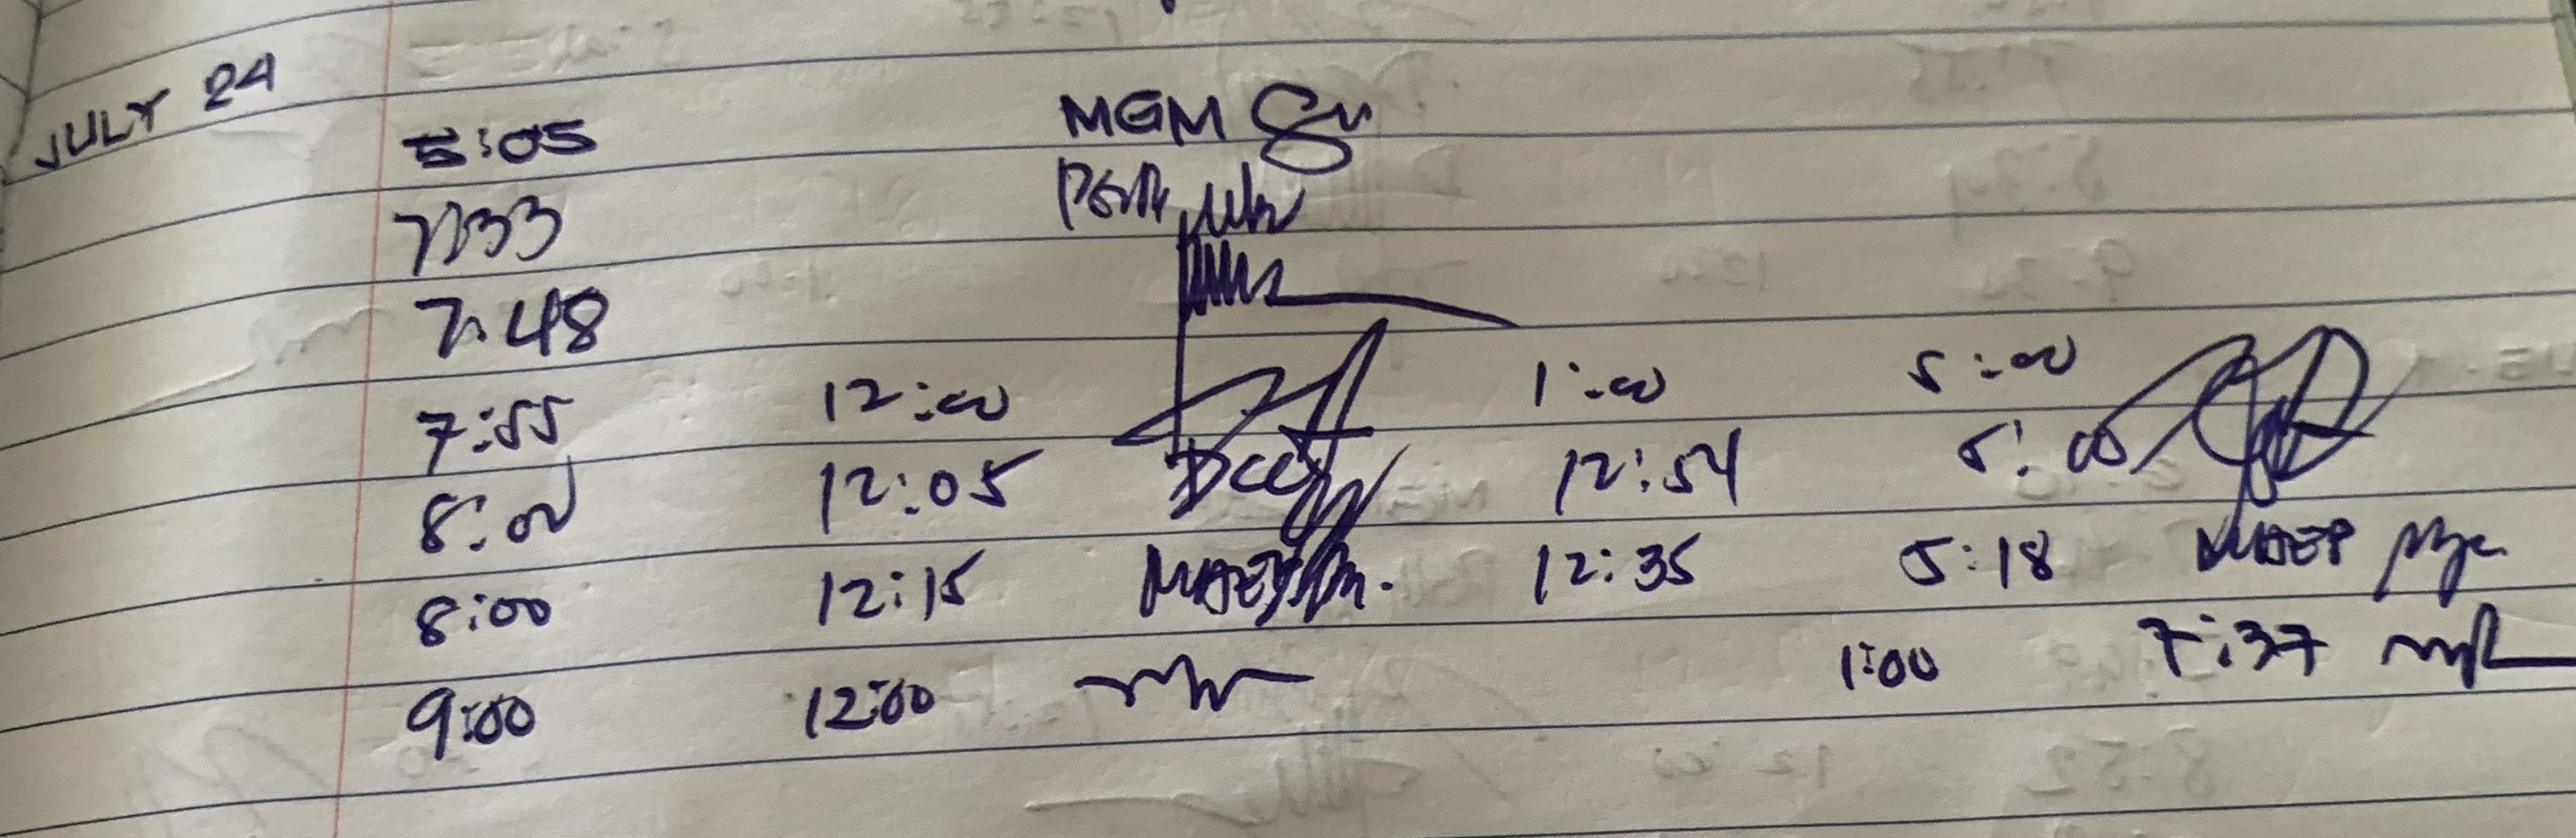 JULY 24
5:05 MGM
7:33
7:48
7:55 12:00 1:00 5:00
8:00 12:05 12:54 5:00
8:00 12:15 MAEP 12:35 5:18 MAEP
9:00 12:00 1:00 7:37